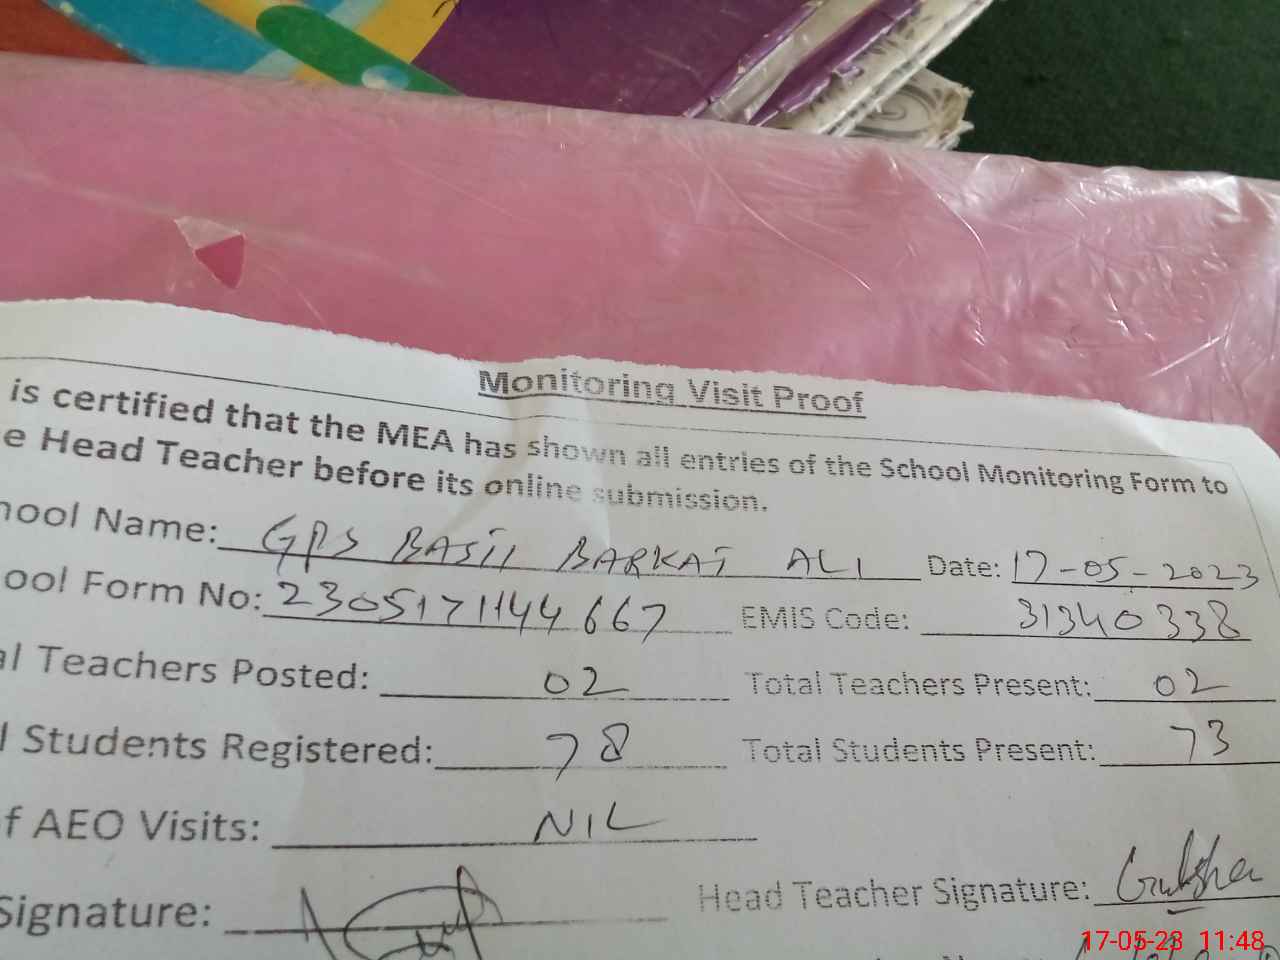 Monitoring Visit Proof
is certified that the MEA has shown all entries of the School Monitoring Form to
e Head Teacher before its online submission.
hool Name: GPS BASTI BARKAT ALI Date: 17-05-2023
ool Form No: 2305171144667 EMIS Code: 31340338
al Teachers Posted: 02 Total Teachers Present: 02
l Students Registered: 78 Total Students Present: 73
f AEO Visits: NIL
Signature: Head Teacher Signature:
17-05-23 11:48